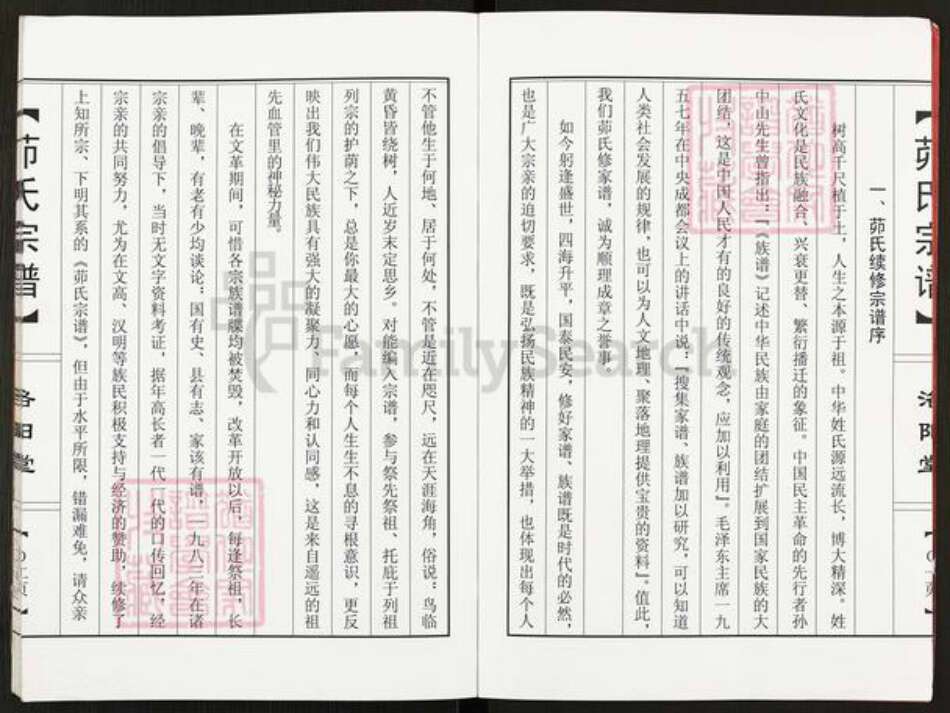 【茆氏宗谱】
洛阳堂
一、茆氏续修宗谱序
树高千尺植于土，人生之本源于祖。中华姓氏源远流长，博大精深。姓
氏文化是民族融合、兴衰更替、繁衍播迁的象征。中国民主革命的先行者孙
中山先生曾指出：『《族谱》记述中华民族由家庭的团结扩展到国家民族的大
团结，这是中国人民才有的良好的传统观念，应加以利用』。毛泽东主席一九
五七年在中央成都会议上的讲话中说：『搜集家谱、族谱加以研究，可以知道
人类社会发展的规律，也可以为人文地理、聚落地理提供宝贵的资料』。值此，
我们茆氏修家谱，诚为顺理成章之誉事。
如今躬逢盛世，四海升平，国泰民安，修好家谱、族谱既是时代的必然，
也是广大宗亲的迫切要求，既是弘扬民族精神的一大举措，也体现出每个人
不管他生于何地、居于何处，不管是近在咫尺，远在天涯海角，俗说：鸟临
黄昏皆绕树，人近岁末定思乡。对能编入宗谱，参与祭先祭祖、托庇于列祖
列宗的护荫之下，总是你最大的心愿，而每个人生生不息的寻根意识，更反
映出我们伟大民族具有强大的凝聚力、同心力和认同感，这是来自遥远的祖
先血管里的神秘力量。
在文革期间，可惜各宗族谱牒均被焚毁，改革开放以后，每逢祭祖，长
辈、晚辈，有老有少均谈论：国有史、县有志、家该有谱，一九八三年在诸
宗亲的倡导下，当时无文字资料考证，据年高长者一代一代的口传回忆，经
宗亲的共同努力，尤为在文高、汉明等族民积极支持与经济的赞助，续修了
上知所宗、下明其系的《茆氏宗谱》，但由于水平所限，错漏难免，请众亲
【茆氏宗谱】
洛阳堂
FamilySearch